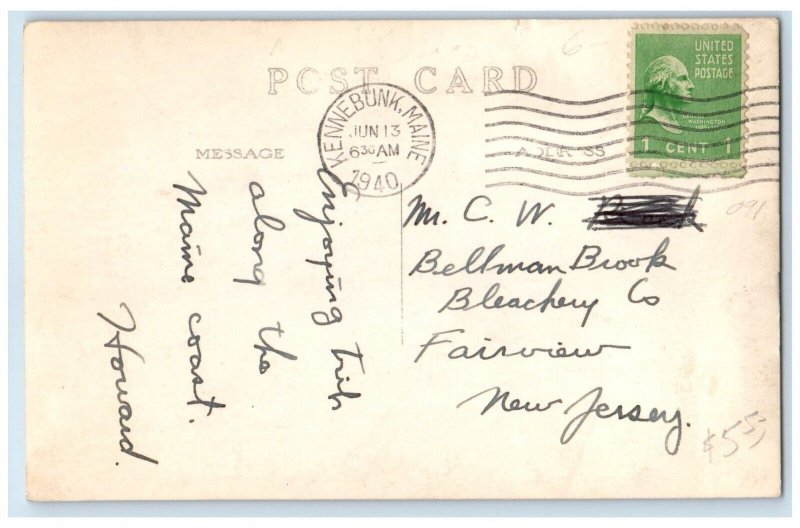 POST CARD
KENNEBUNK, MAINE
JUN 13
6 30 AM
1940
UNITED
STATES
POSTAGE
GEORGE
WASHINGTON
1 CENT 1
MESSAGE
ADDRESS
Enjoying trip
along the
Maine coast.
Howard.
Mr. C. W.
Bellman Brook
Bleachery Co
Fairview
New Jersey.
091
6-